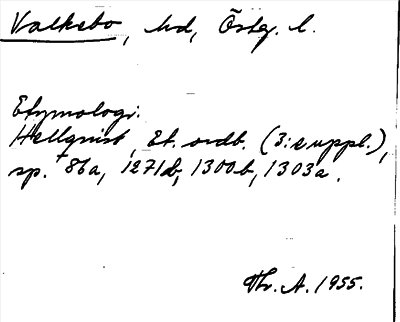 Valkebo, hd, Östg. l.
Etymologi:
Hellquist, Et. ordb. (3:e uppl.),
sp. 86a, 1271b, 1300b, 1303a.
Thr. A. 1955.